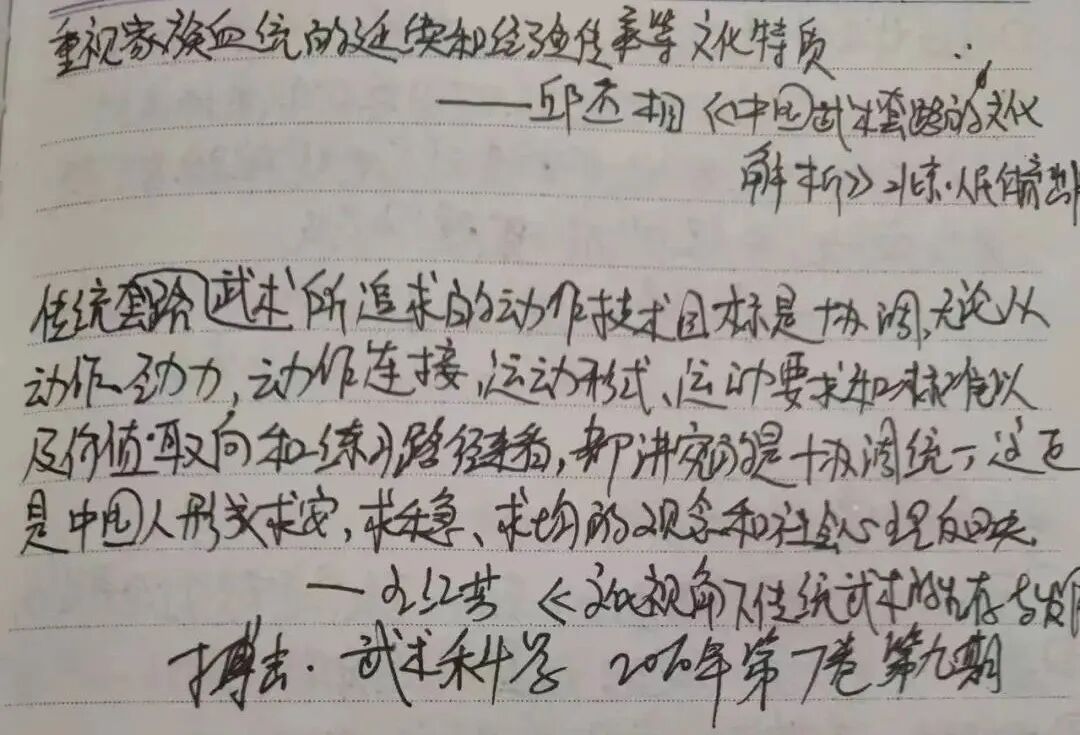 重视家族血统的延续和经验传承等文化特质
——邱丕相《中国武术套路的文化
解析》北京·人民体育出
传统套路武术所追求的动作技术目标是协调,无论从
动作劲力,动作连接,运动形式、运动要求和标准以
及价值取向和练习路径来看,都讲究的是协调统一,这也
是中国人形成求安,求稳、求均的观念和社会心理的
—红《文化视角下传统武术的生存与发
搏击·武术科学 2010年第7卷第九期